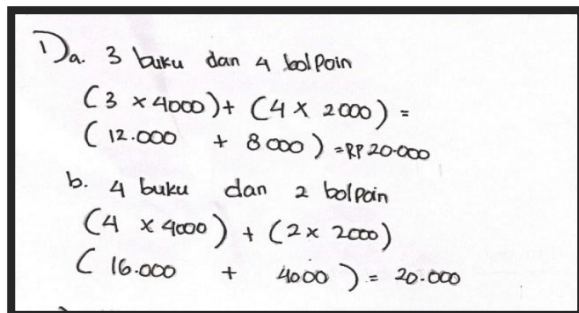 1) a. 3 buku dan 4 bolpoin
(3 × 4000) + (4 × 2000) =
(12.000 + 8000) = RP 20.000
b. 4 buku dan 2 bolpoin
(4 × 4000) + (2 × 2000)
(16.000 + 4000) = 20.000